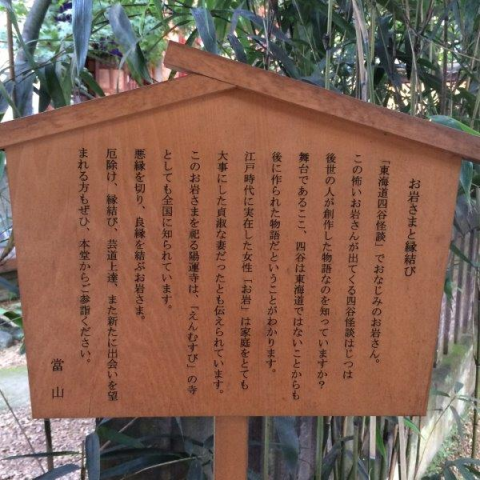 お岩さまと縁結び
「東海道四谷怪談」でおなじみのお岩さん。
この怖いお岩さんが出てくる四谷怪談はじつは
後世の人が創作した物語なのを知っていますか?
舞台であるここ、四谷は東海道ではないことからも
後に作られた物語だということがわかります。
江戸時代に実在した女性「お岩」は家庭をとても
大事にした貞淑な妻だったとも伝えられています。
このお岩さまを祀る陽運寺は、「えんむすび」の寺
としても全国に知られています。
悪縁を切り、良縁を結ぶお岩さま。
厄除け、縁結び、芸道上達、また新たに出会いを望
まれる方もぜひ、本堂からご参詣ください。
當山